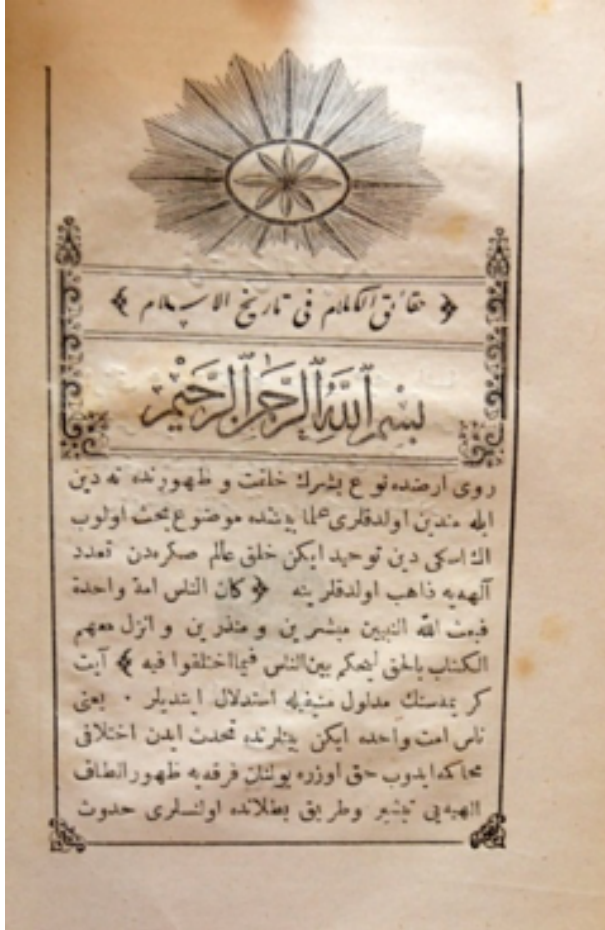 ﴿ حقائق الكلام فی تاريخ الاسلام ﴾
بسم الله الرحمن الرحيم
روی ارضده نوع بشرك خلقت و ظهورنده نه دين
ايله متدين اولدقلری علما بيننده موضوع بحث اولوب
اك اسكی دين توحيد ايكن خلق عالم صكره دن تعدد
آلهه يه ذاهب اولدقلرينه ﴿ كان الناس امة واحدة
فبعث الله النبيين مبشرين و منذرين و انزل معهم
الكتاب بالحق ليحكم بين الناس فيما اختلفوا فيه ﴾ آيت
كريمه سنك مدلول منيفيله استدلال ايتديلر · يعنی
ناس امت واحده ايكن بينلرنده تحدث ايدن اختلافی
محاكمه ايدوب حق اوزره بولنان فرقه يه ظهور الطاف
الهيه يی تبشير و طريق بطلانده اولنلری حدوث